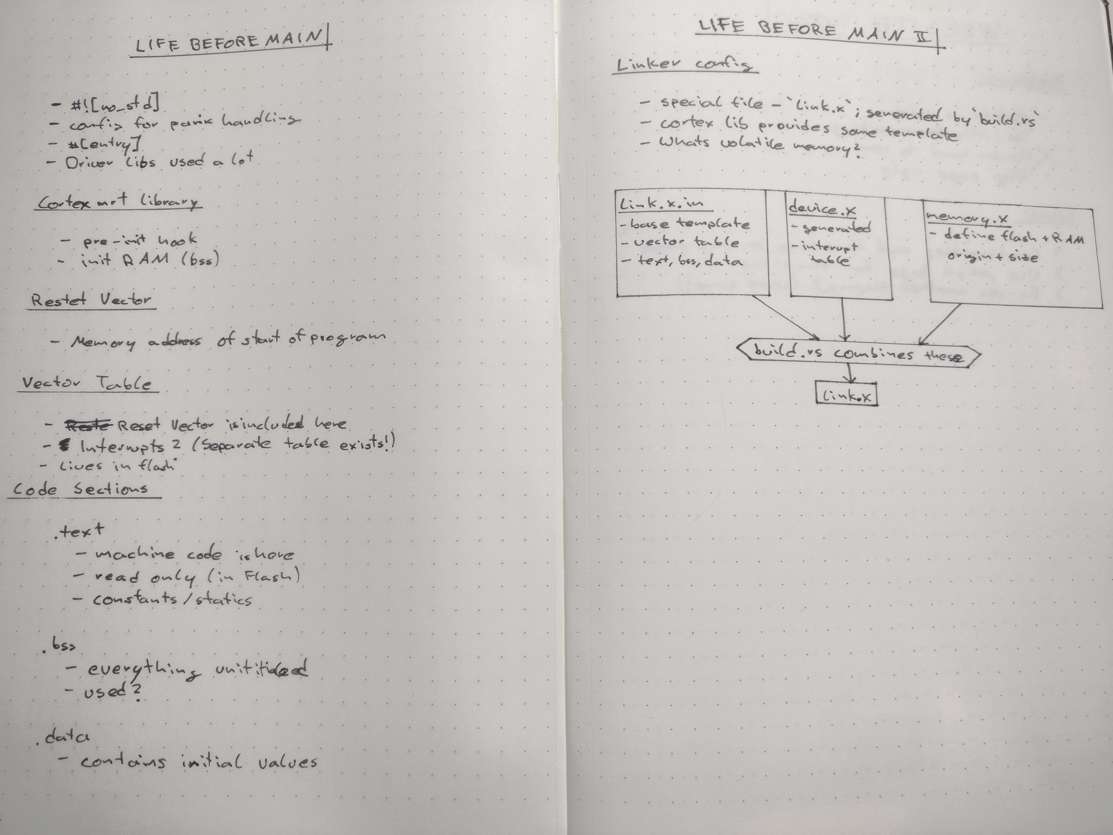 LIFE BEFORE MAIN
- #![no_std]
- config for panic handling
- #[entry]
- Driver libs used a lot
Cortex m-rt library
- pre-init hook
- init RAM (bss)
Restet Vector
- Memory address of start of program
Vector Table
- Reset Vector is included here
- Interrupts ? (Separate table exists!)
- Lives in flash
Code Sections
.text
- machine code is here
- read only (in Flash)
- constants/statics
.bss
- everything
- used?
.data
- contains initial values
LIFE BEFORE MAIN II
Linker config
- special file - `link.x`; generated by `build.rs`
- cortex lib provides some template
- Whats volatile memory?
link.x.in
- base template
- vector table
- text, bss, data
device.x
- generated
- interupt
table
memory.x
- define flash + RAM
origin + size
build.rs combines these
link.x